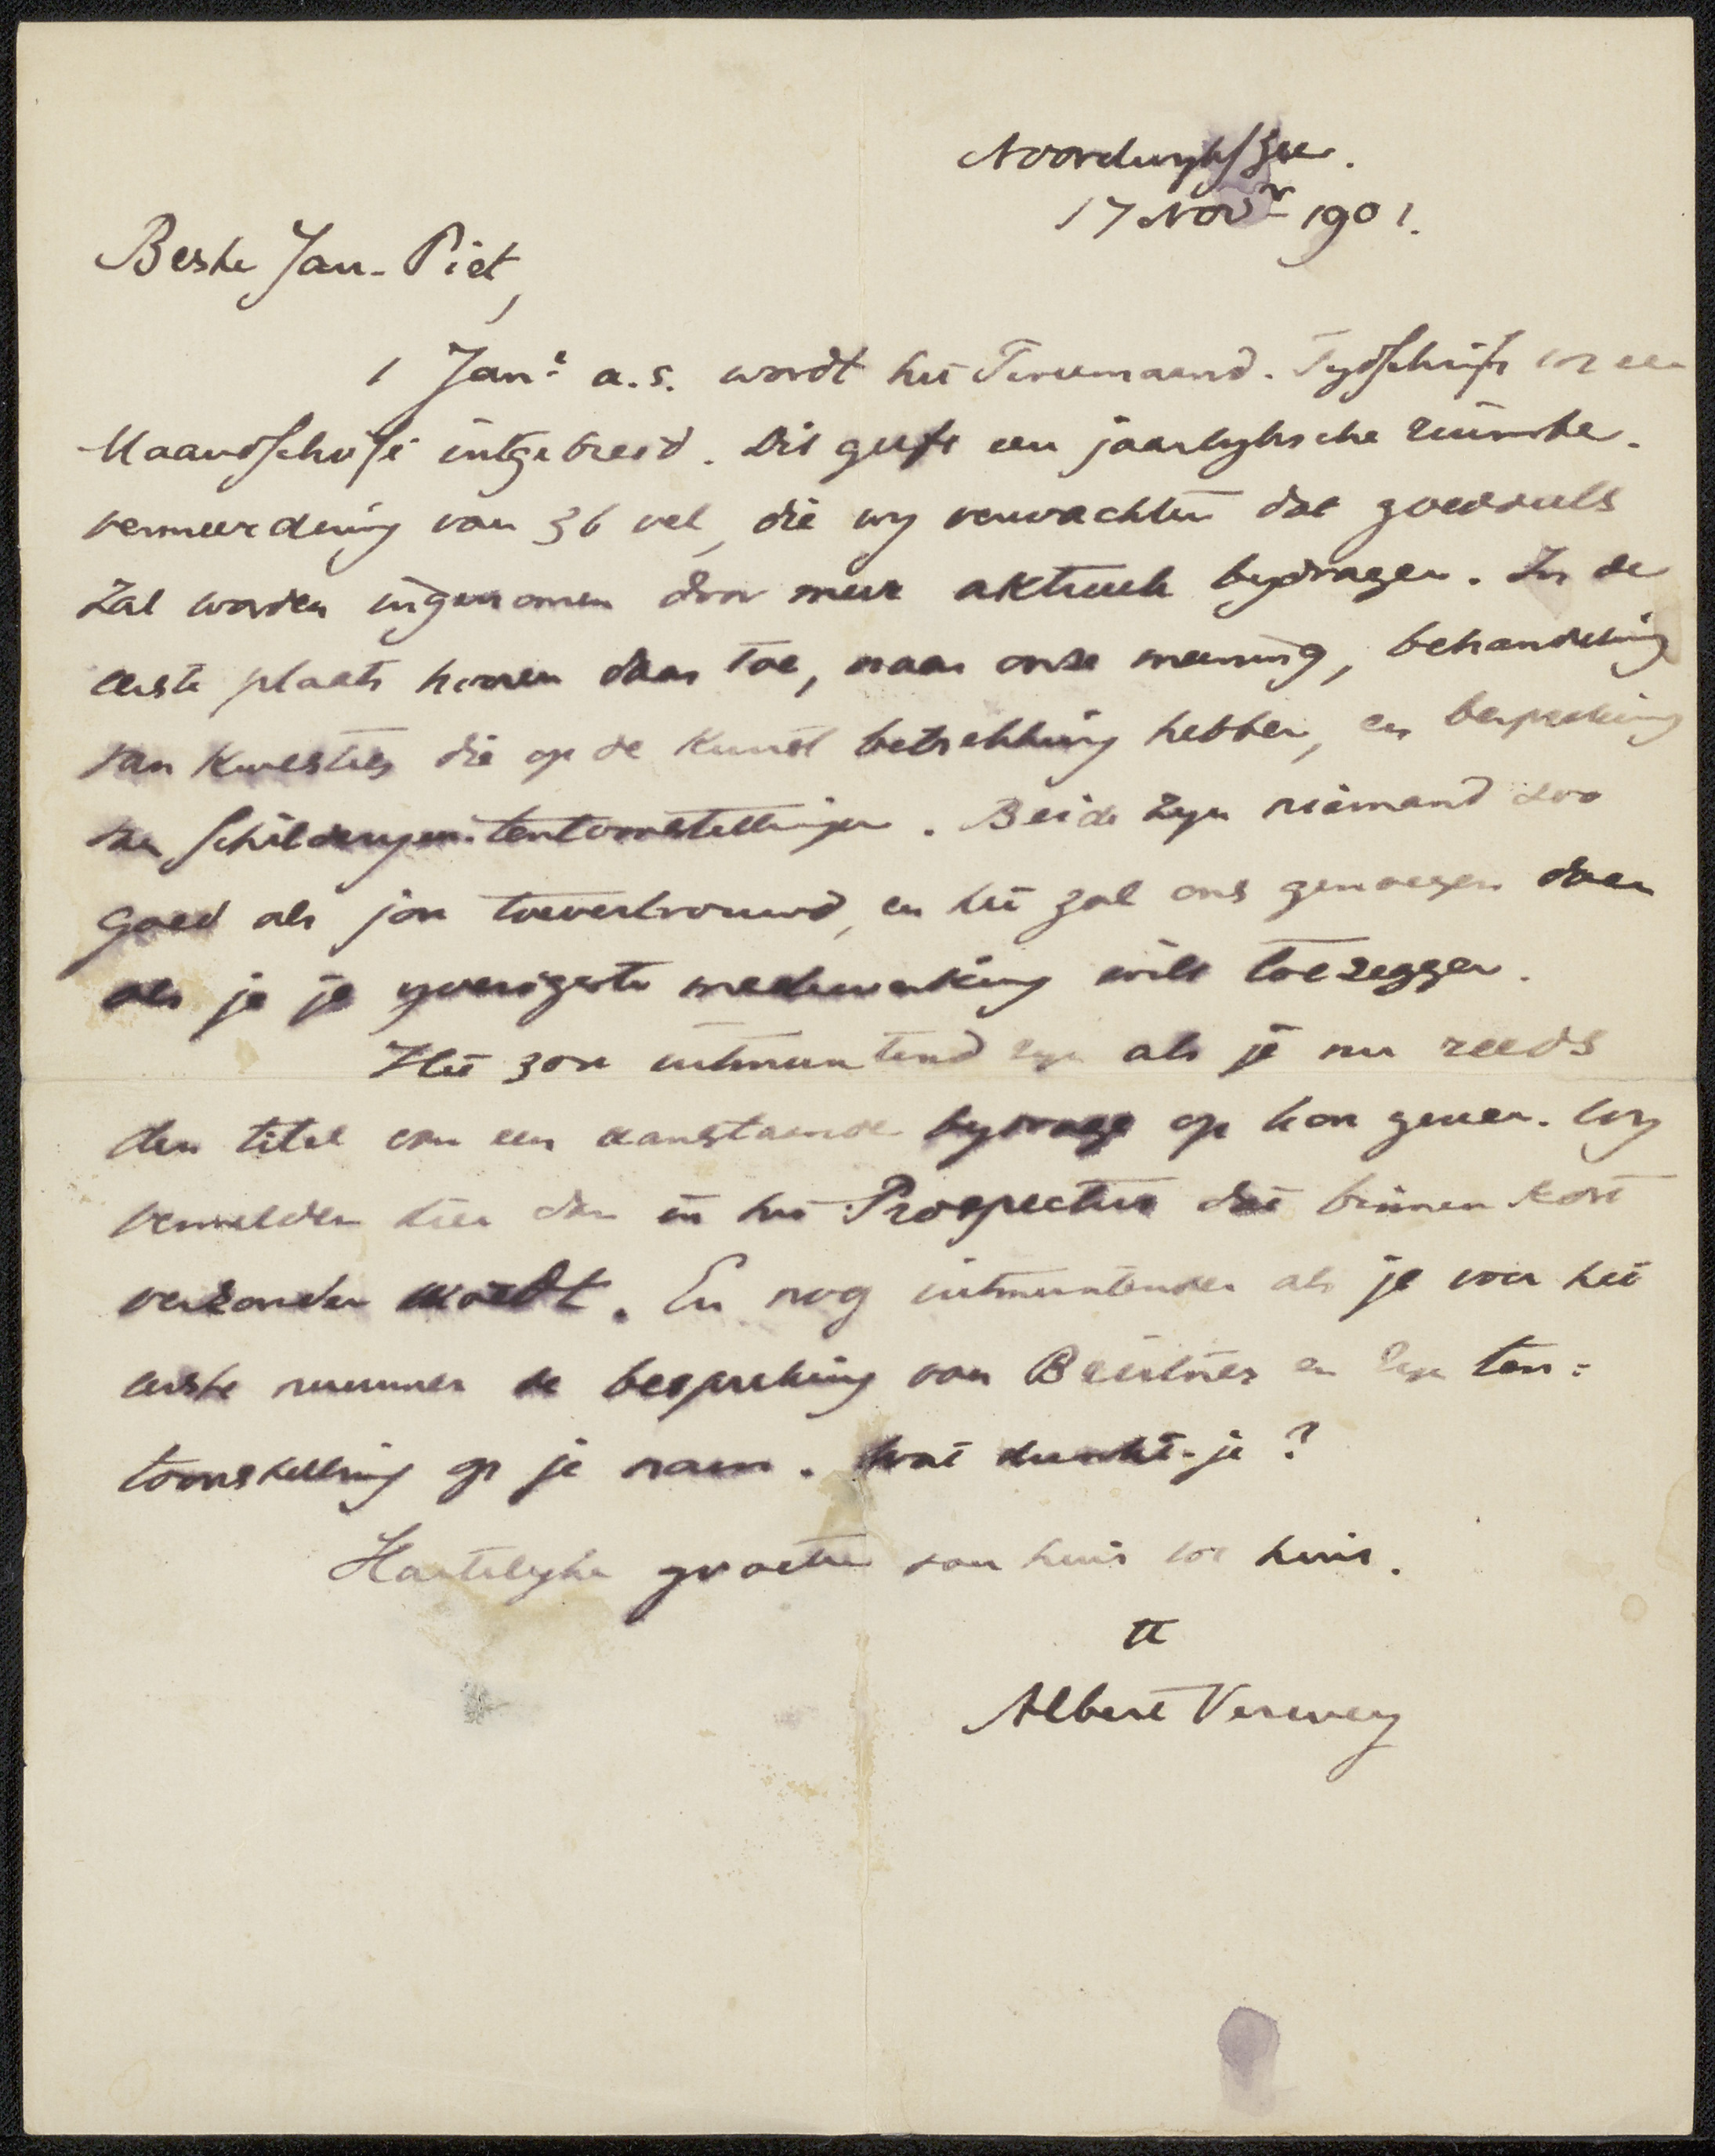 Noordwijk/Zee.
17 Novr 1901.
Beste Jan-Piet,
1 Jan: a.s. wordt het Tweemaand. Tijdschrift tot een
Maandschrift uitgebreid. Dit geeft een jaarlijksche ruimte-
vermeerdering van 36 vel, die wij verwachten dat goeddeels
zal worden ingenomen door meer aktueele bijdragen. In de
eerste plaats hooren daar toe, naar onze meening, behandeling
van kwesties die op de Kunst betrekking hebben, en bespreking
van schilderijen-tentoonstellingen. Beide zijn niemand zoo
goed als jou toevertrouwd, en het zal ons genoegen doen
als je je ijverigste medewerking wilt toezeggen.
Het zou uitmuntend zijn als je nu reeds
den titel van een aanstaande bijdrage op kon geven. Wij
vermelden die dan in het Prospectus dat binnen kort
verzonden wordt. En nog uitmuntender als je voor het
eerste nummer de bespreking van Breitner en zijn ten=
toonstelling op je nam. Wat dunkt-je?
Hartelijke groeten van huis tot huis.
tt
Albert Verwey